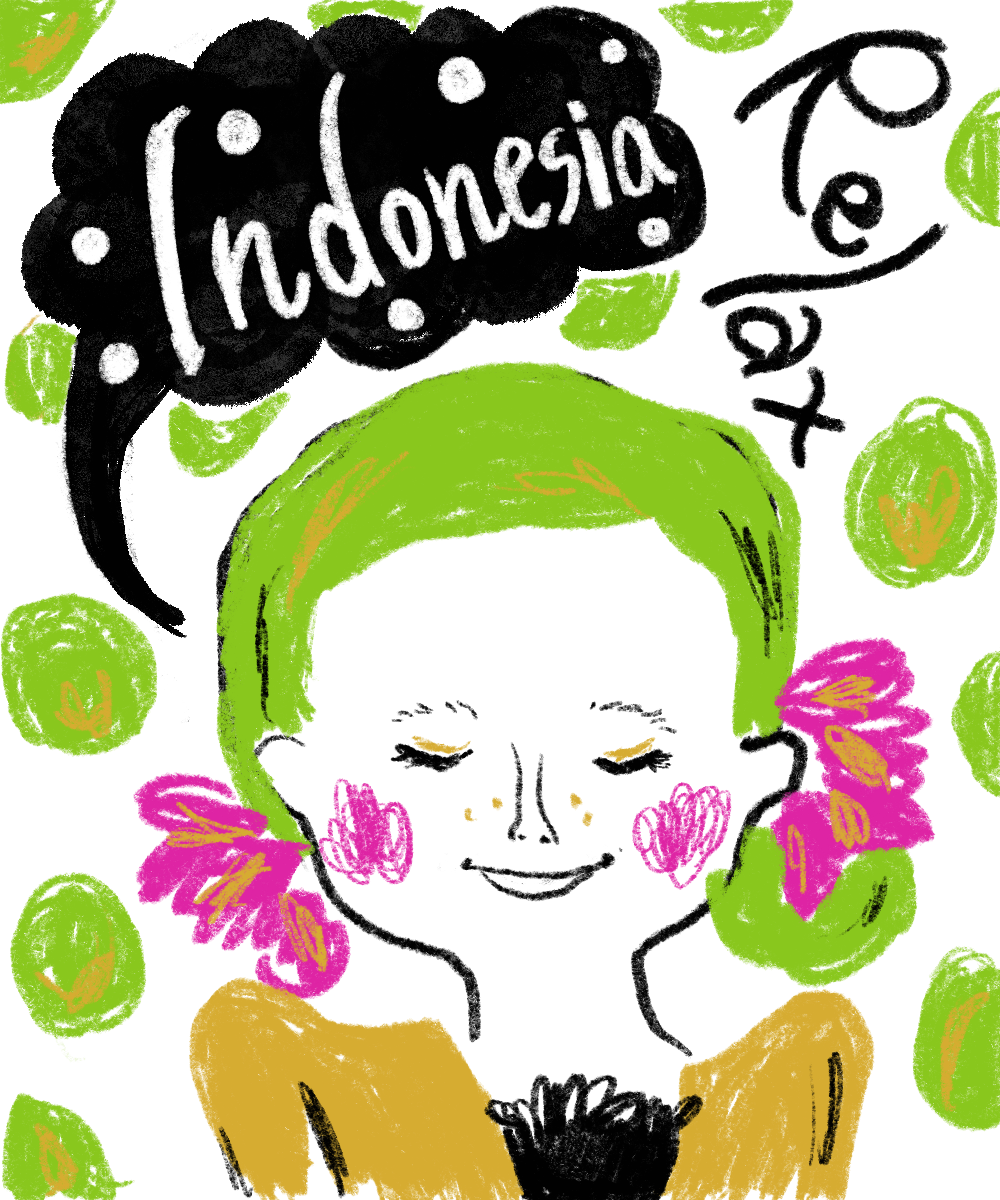 Indonesia
Relax